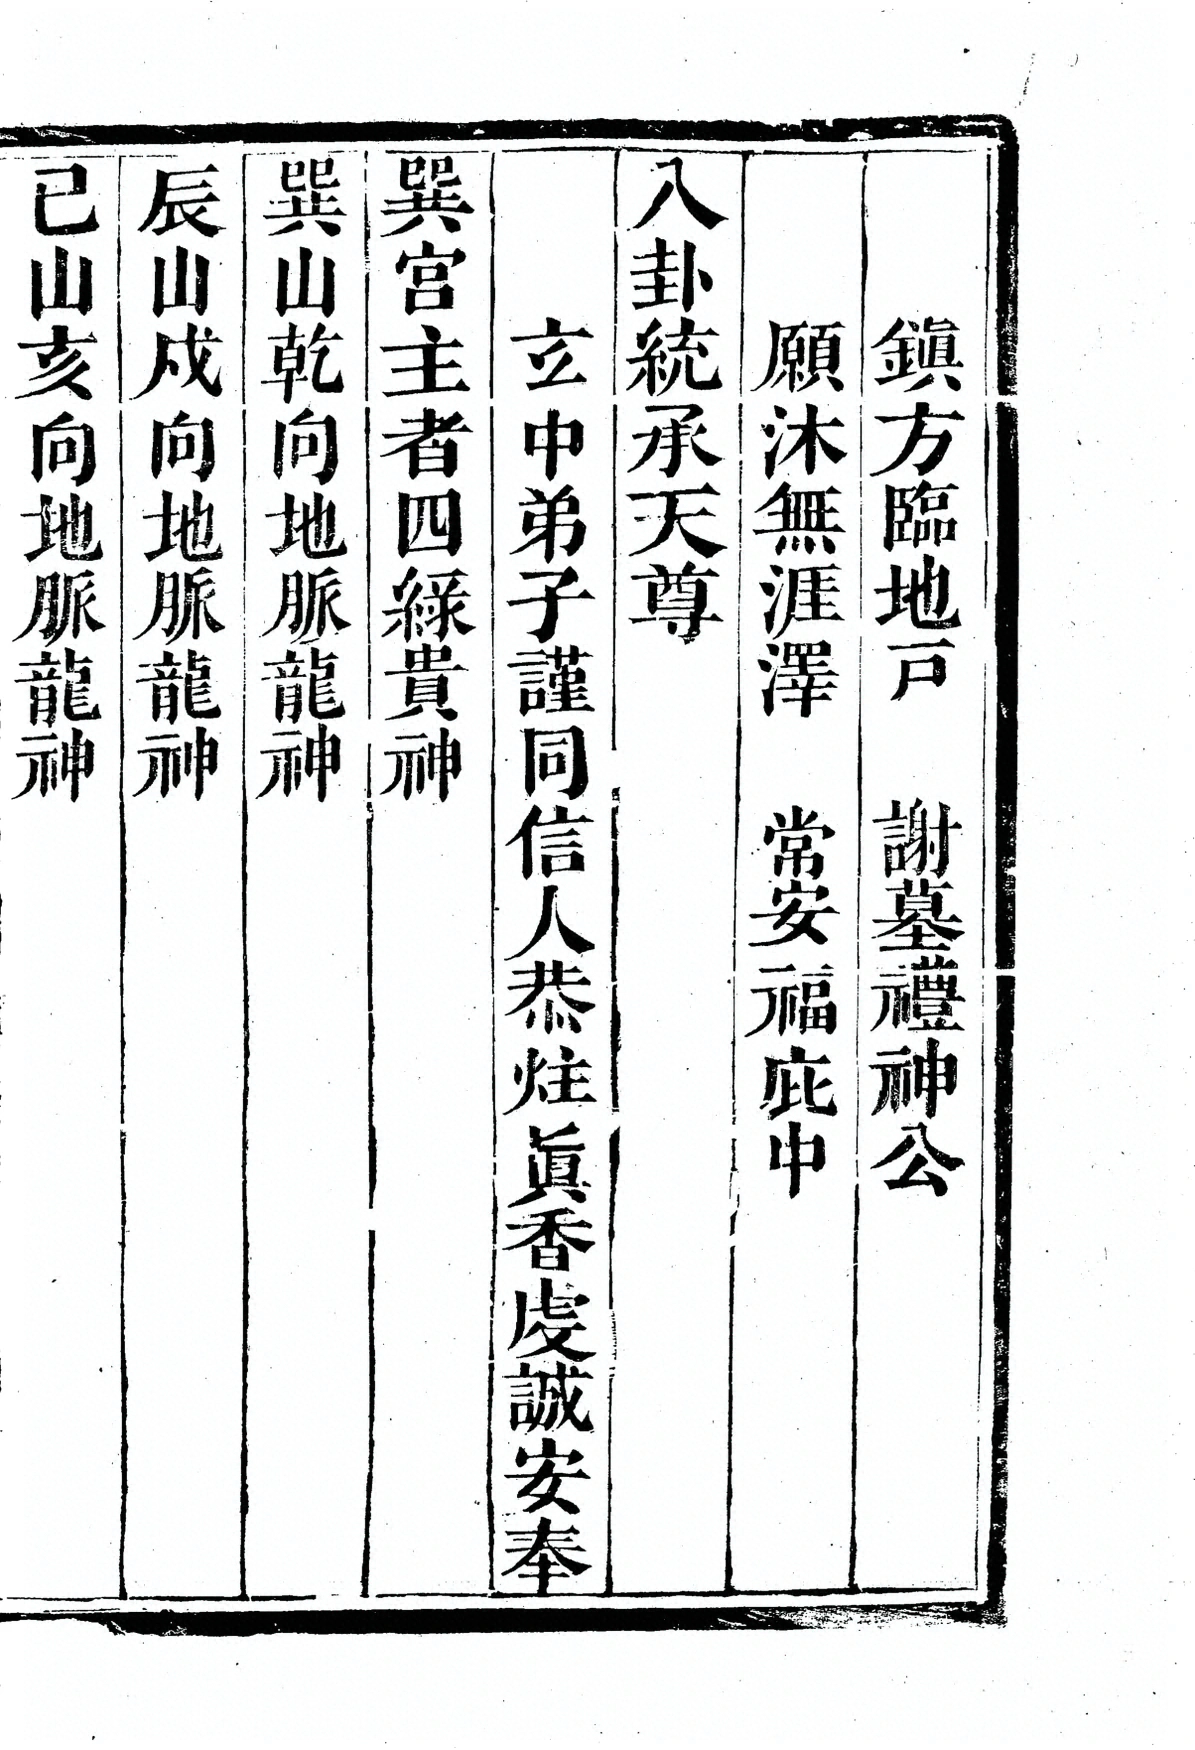 鎭方臨地戸　謝墓禮神公
願沐無涯澤　常安福庇中
八卦統承天尊
立中弟子謹同信人恭炷眞香虔誠安奉
巽宮主者四綠貴神
巽山乾向地脈龍神
辰山戍向地脈龍神
已山亥向地脈龍神